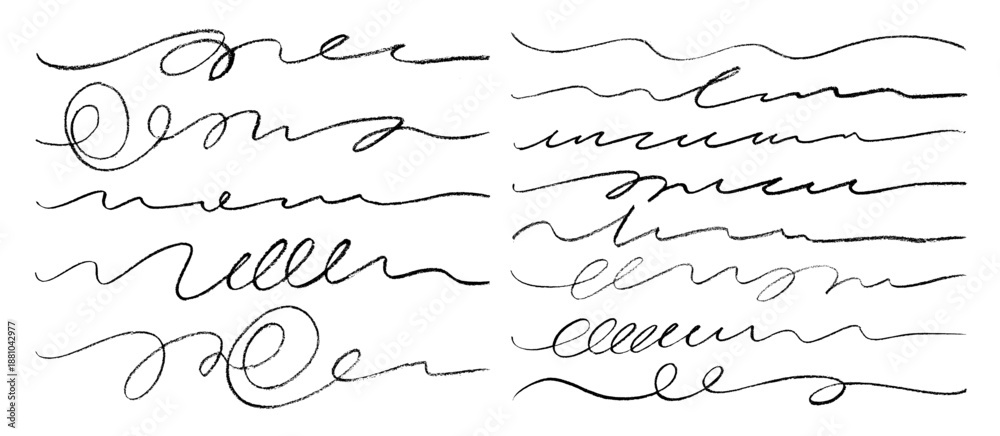 Adobe Stock | #1881042977